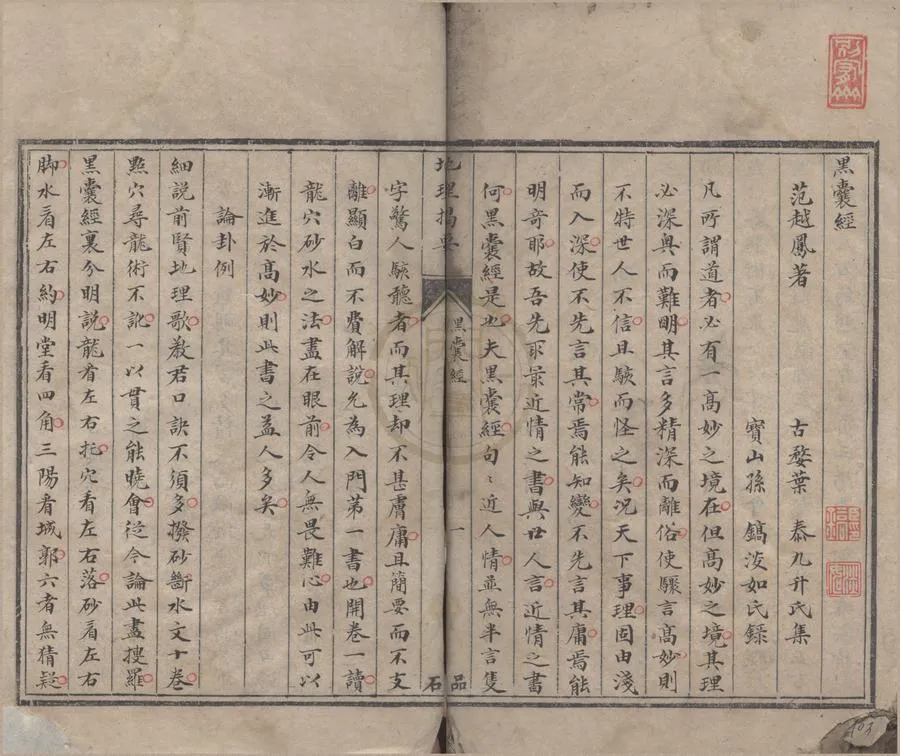 黑囊經
范越鳳著
古婺葉 泰九升氏集
寶山孫 鎬浚如氏錄
凡所謂道者必有一高妙之境在但高妙之境其理
必深奥而難明其言多精深而離俗使驟言高妙則
不特世人不信且駭而怪之矣况天下事理固由淺
而入深使不先言其常焉能知變不先言其庸焉能
明奇耶故吾先取最近情之書與世人言近情之書
何黑囊經是也夫黑囊經句〻近人情並無半言隻
地理揭要
黑囊經
一
石品
字驚人駭聽者而其理却不甚膚庸且簡要而不支
離顯白而不費解說允為入門第一書也開卷一讀
龍穴砂水之法盡在眼前令人無畏難心由此可以
漸進於高妙則此書之益人多矣
論卦例
細說前賢地理歌教君口訣不須多撥砂斷水文十卷
點穴尋龍術不訛一以貫之能曉會從今論此盡搜羅
黑囊經裏分明說龍看左右托穴看左右落砂看左右
脚水看左右約明堂看四角三陽看城郭六者無猜疑
103